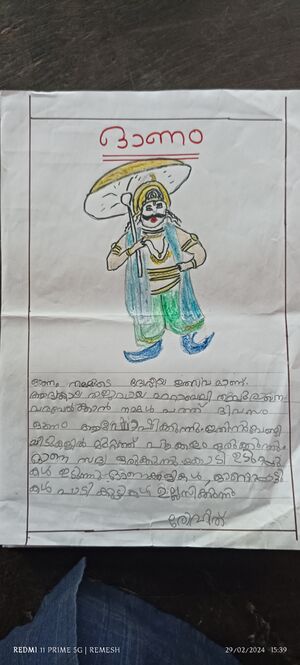 ഓണം
ഓണം നമ്മുടെ ദേശീയ ഉത്സവമാണ്.
മഹാബലി തമ്പുരാനെ
വരവേൽക്കാൻ നമ്മൾ പത്ത് ദിവസം
ഓണം ആഘോഷിക്കുന്നു.
വീടുകളിൽ മുറ്റത്ത് പൂക്കളം ഒരുക്കുന്നു.
ഓണ സദ്യ ഒരുക്കുന്നു. കോടി ഉടുപ്പു
കൾ ഇടുന്നു. ഓണക്കളികൾ, ഓണപ്പാട്ടു
കൾ പാടി കുട്ടികൾ ഉല്ലസിക്കുന്നു
REDMI 11 PRIME 5G | REMESH
29/02/2024 15:39